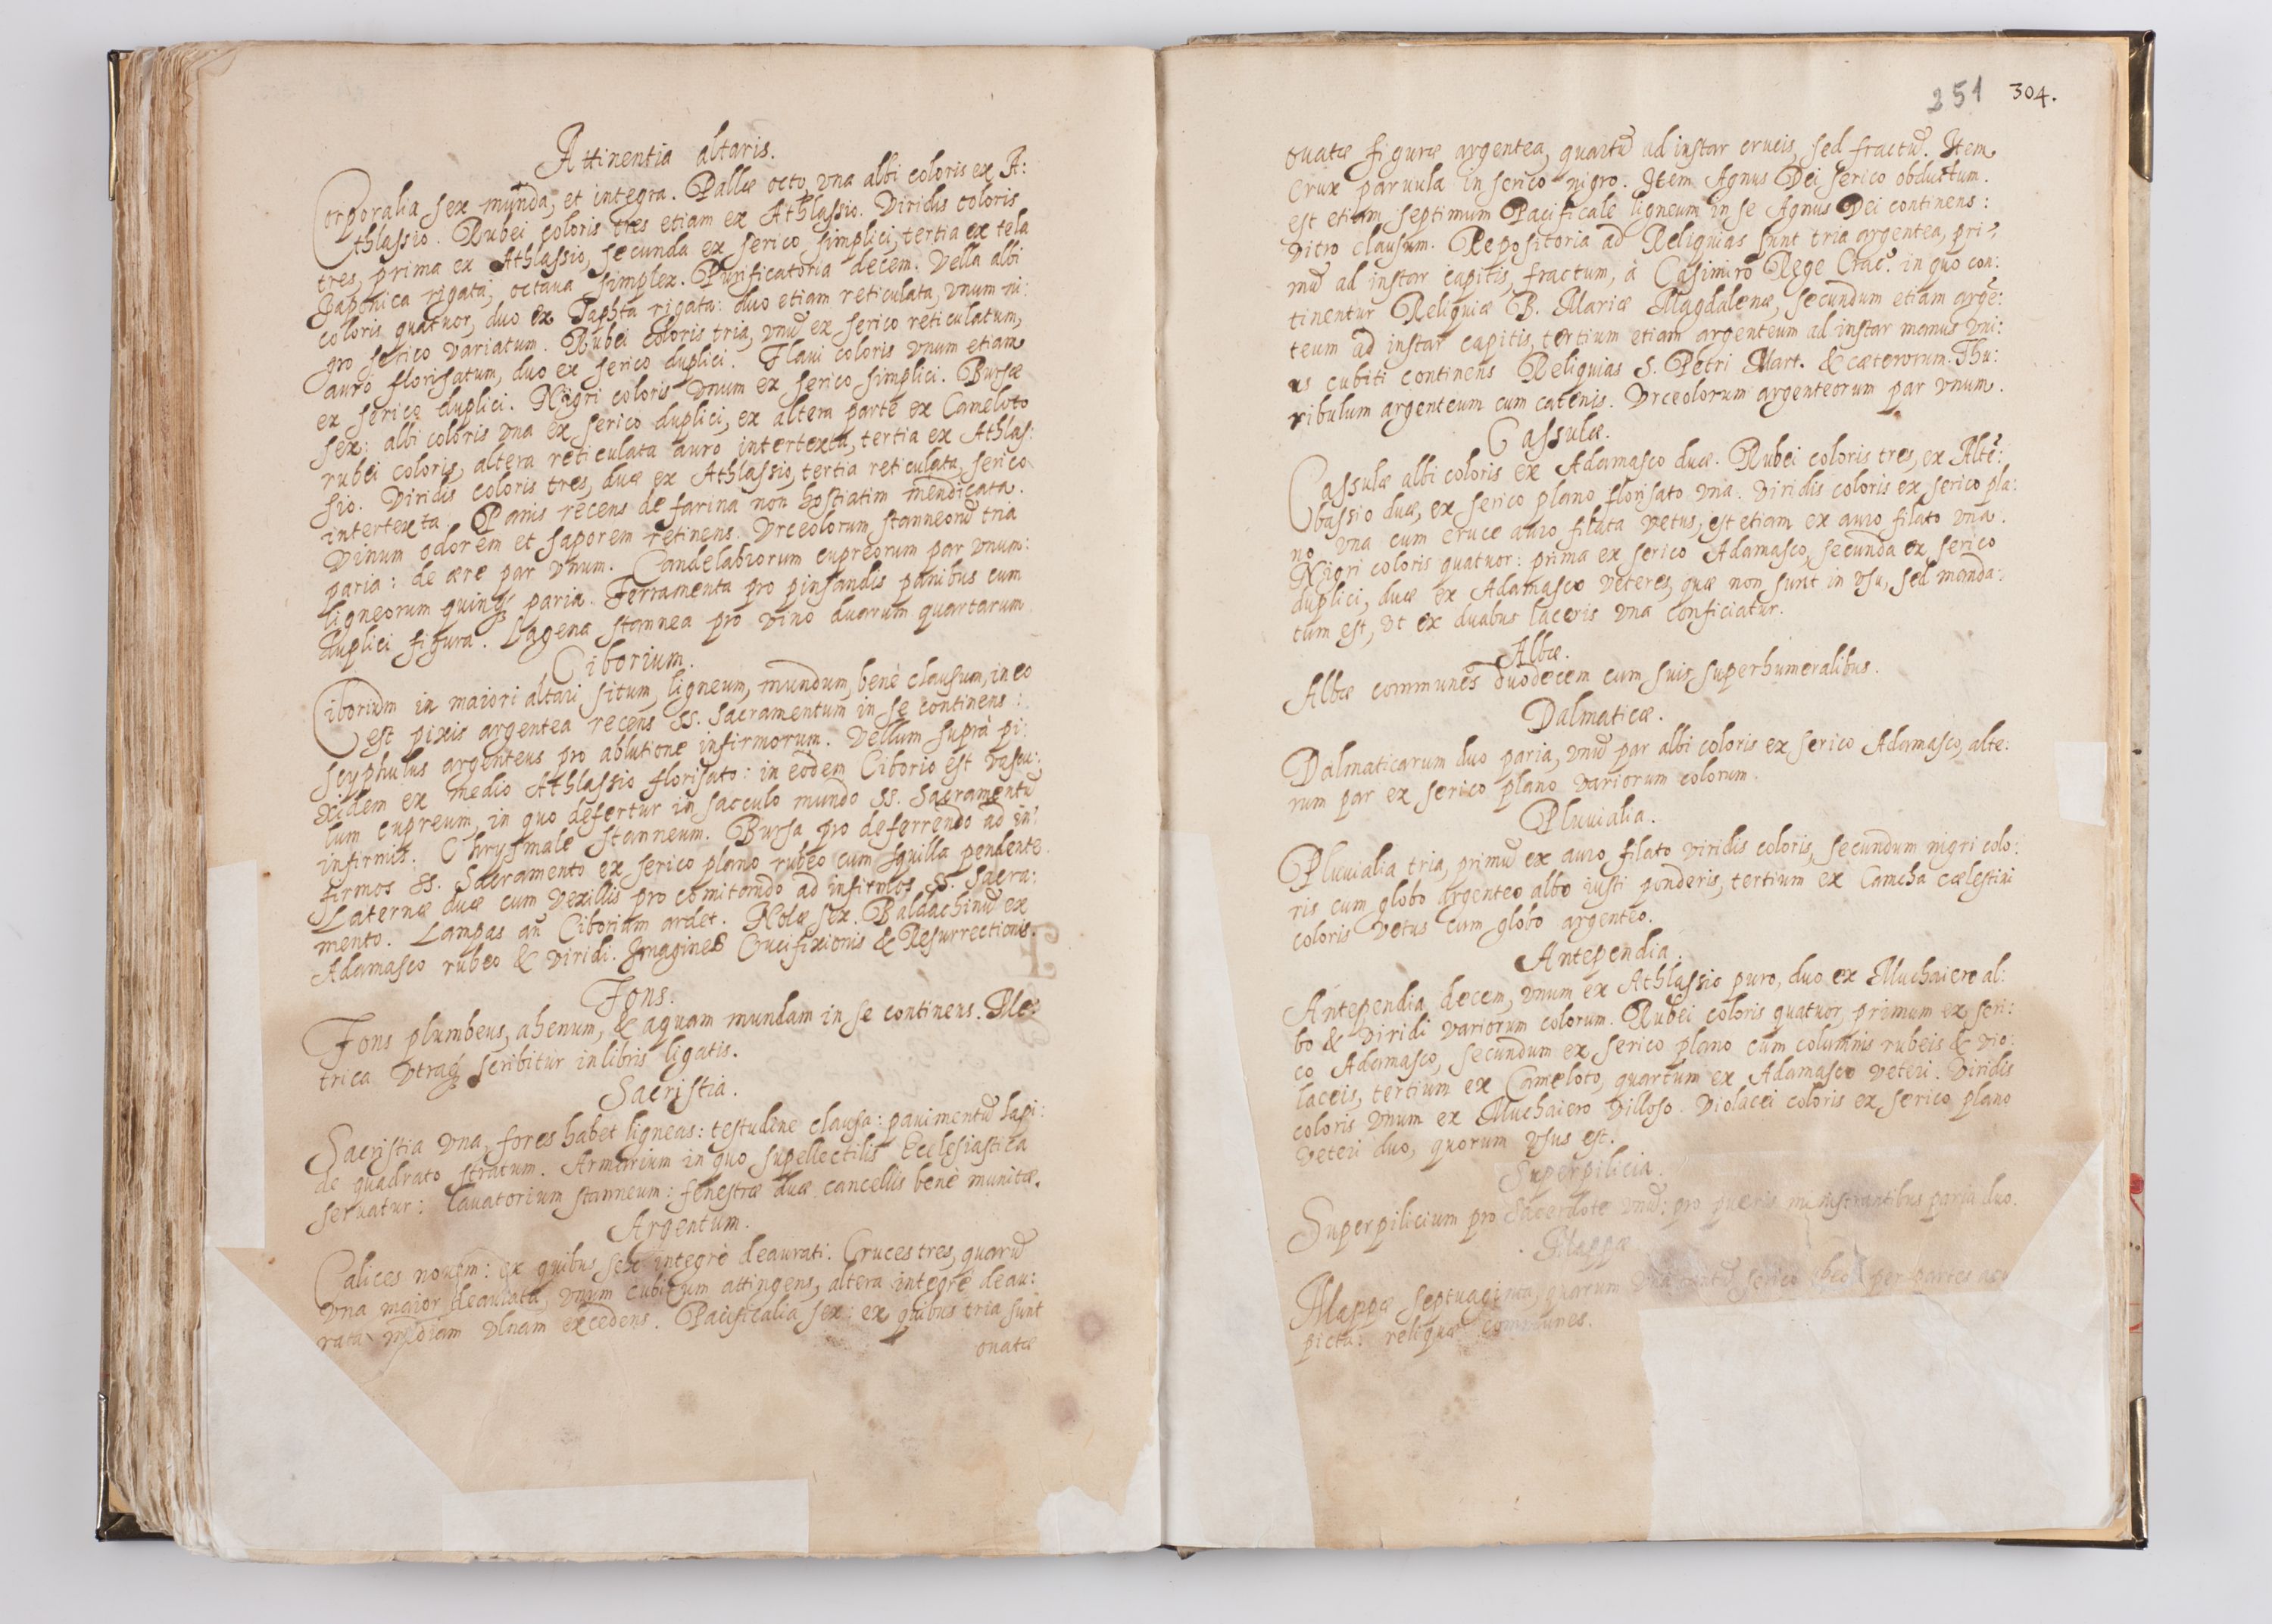 Attinentia altaris.
Corporalia sex munda, et integra. Pallæ octo, vna albi coloris ex A:
thlassio. Rubei coloris tres etiam ex Athlassio. Viridis coloris
tres, prima ex Athlassio, secunda ex serico simplici, tertia ex tela
Japonica rigata, octaua simplex. Purificatoria decem. Vella albi
coloris quatuor, duo ex Taphta rigata: duo etiam reticulata, vnum ni:
gro serico variatum. Rubei coloris tria, vnũ ex serico reticulatum,
auro florisatum, duo ex serico duplici. Flaui coloris vnum etiam
ex serico duplici. Nigri coloris vnum ex serico simplici. Bursæ
sex: albi coloris vna ex serico duplici, ex altera parte ex Cameloto
rubei coloris, altera reticulata auro intertexta, tertia ex Athlas:
sio. Viridis coloris tres, duæ ex Athlassio, tertia reticulata, serico
intertexta. Panis recens de farina non hostiatim mendicata.
Vinum odorem et saporem retinens. Vrceolorum stanneorũ tria
paria: de ære par vnum. Candelabrorum cupreorum par vnum:
ligneorum quinq; paria. Ferramenta pro pinsandis panibus cum
duplici figura. Lagena stannea pro vino duarum quartarum
Ciborium.
Ciborium in maiori altari situm, ligneum, mundum, benè clausum, in eo
est pixis argentea recens SS. Sacramentum in se continens:
scyphulus argenteus pro ablutione infirmorum. Vellum suprà pi:
xidem ex medio Athlassio florisato: in eodem Ciborio est vascu:
lum cupreum, in quo defertur in sacculo mundo SS. Sacramentũ
infirmis. Chrysmale stanneum. Bursa pro deferrendo ad in:
firmos SS. Sacramento ex serico plano rubeo cum squilla pendente
Laternæ duæ cum vexillis pro comitando ad infirmos SS. Sacra:
mento. Lampas añ Ciborium ardet. Nolæ sex. Baldachinũ ex
Adamasco rubeo & viridi. Imagines Crucifixionis & Resurrectionis.
Fons.
Fons plumbeus, ahenum, & aquam mundam in se continens. Me:
trica vtraq; scribitur in libris ligatis.
Sacristia.
Sacristia vna, fores habet ligneas: testudine clausa: pauimentũ lapi:
de quadrato stratum. Armarium in quo supellectilis Ecclesiastica
seruatur: lauatorium stanneum: fenestræ duæ cancellis benè munitæ.
Argentum.
Calices nouem: ex quibus sex integrè deaurati. Cruces tres, quarũ
vna maior deaurata, vnum cubitum attingens, altera integrè deau:
rata mediam vlnam excedens. Pacificalia sex: ex quibus tria sunt
ouatæ
251 304.
ouatæ figuræ argentea, quartũ ad instar crucis, sed fractũ. Item
Crux paruula in serico nigro. Item Agnus Dei serico obductum.
est etiam septimum Pacificale ligneum in se Agnus Dei continens:
vitro clausum. Repositoria ad Reliquias sunt tria argentea, pri:
mũ ad instar capitis, fractum, à Casimiro Rege Crac: in quo con:
tinentur Reliquiæ B. Mariæ Magdalenæ, secundum etiam argẽ:
teum ad instar capitis, tertium etiam argenteum ad instar manus vni:
us cubiti continens Reliquias S. Petri Mart. & cæterorum. Thu:
ribulum argenteum cum catenis. Vrceolorum argenteorum par vnum.
Cassulæ.
Cassulæ albi coloris ex Adamasco duæ. Rubei coloris tres, ex Altẽ:
bassio duæ, ex serico plano florisato vna. Viridis coloris ex serico pla:
no vna cum cruce auro filata vetus, est etiam ex auro filato vna.
Nigri coloris quatuor: prima ex serico Adamasco, secunda ex serico
duplici, duæ ex Adamasco veteres, quæ non sunt in vsu, sed manda:
tum est, vt ex duabus laceris vna conficiatur.
Albæ.
Albæ communes duodecem cum suis superhumeralibus.
Dalmaticæ.
Dalmaticarum duo paria, vnũ par albi coloris ex serico Adamasco, alte:
rum par ex serico plano variorum colorum.
Pluuialia.
Pluuialia tria, primũ ex auro filato viridis coloris, secundum nigri colo:
ris cum globo argenteo albo iusti ponderis, tertium ex Camcha cælestini
coloris vetus cum globo argenteo.
Antependia.
Antependia decem, vnum ex Athlassio puro, duo ex Muchaiero al:
bo & viridi variorum colorum. Rubei coloris quatuor, primum ex seri:
co Adamasco, secundum ex serico plano cum columnis rubeis & vio:
laceis, tertium ex Cameloto, quartum ex Adamasco veteri. Viridis
coloris vnum ex Muchaiero villoso. Violacei coloris ex serico plano
veteri duo, quorum vsus est.
Superpilicia.
Superpilicium pro Sacerdote vnũ: pro pueris ministrantibus paria duo.
Mappæ
Mappæ septuaginta, quarum vna serico per partes acu
picta: reliquæ communes.